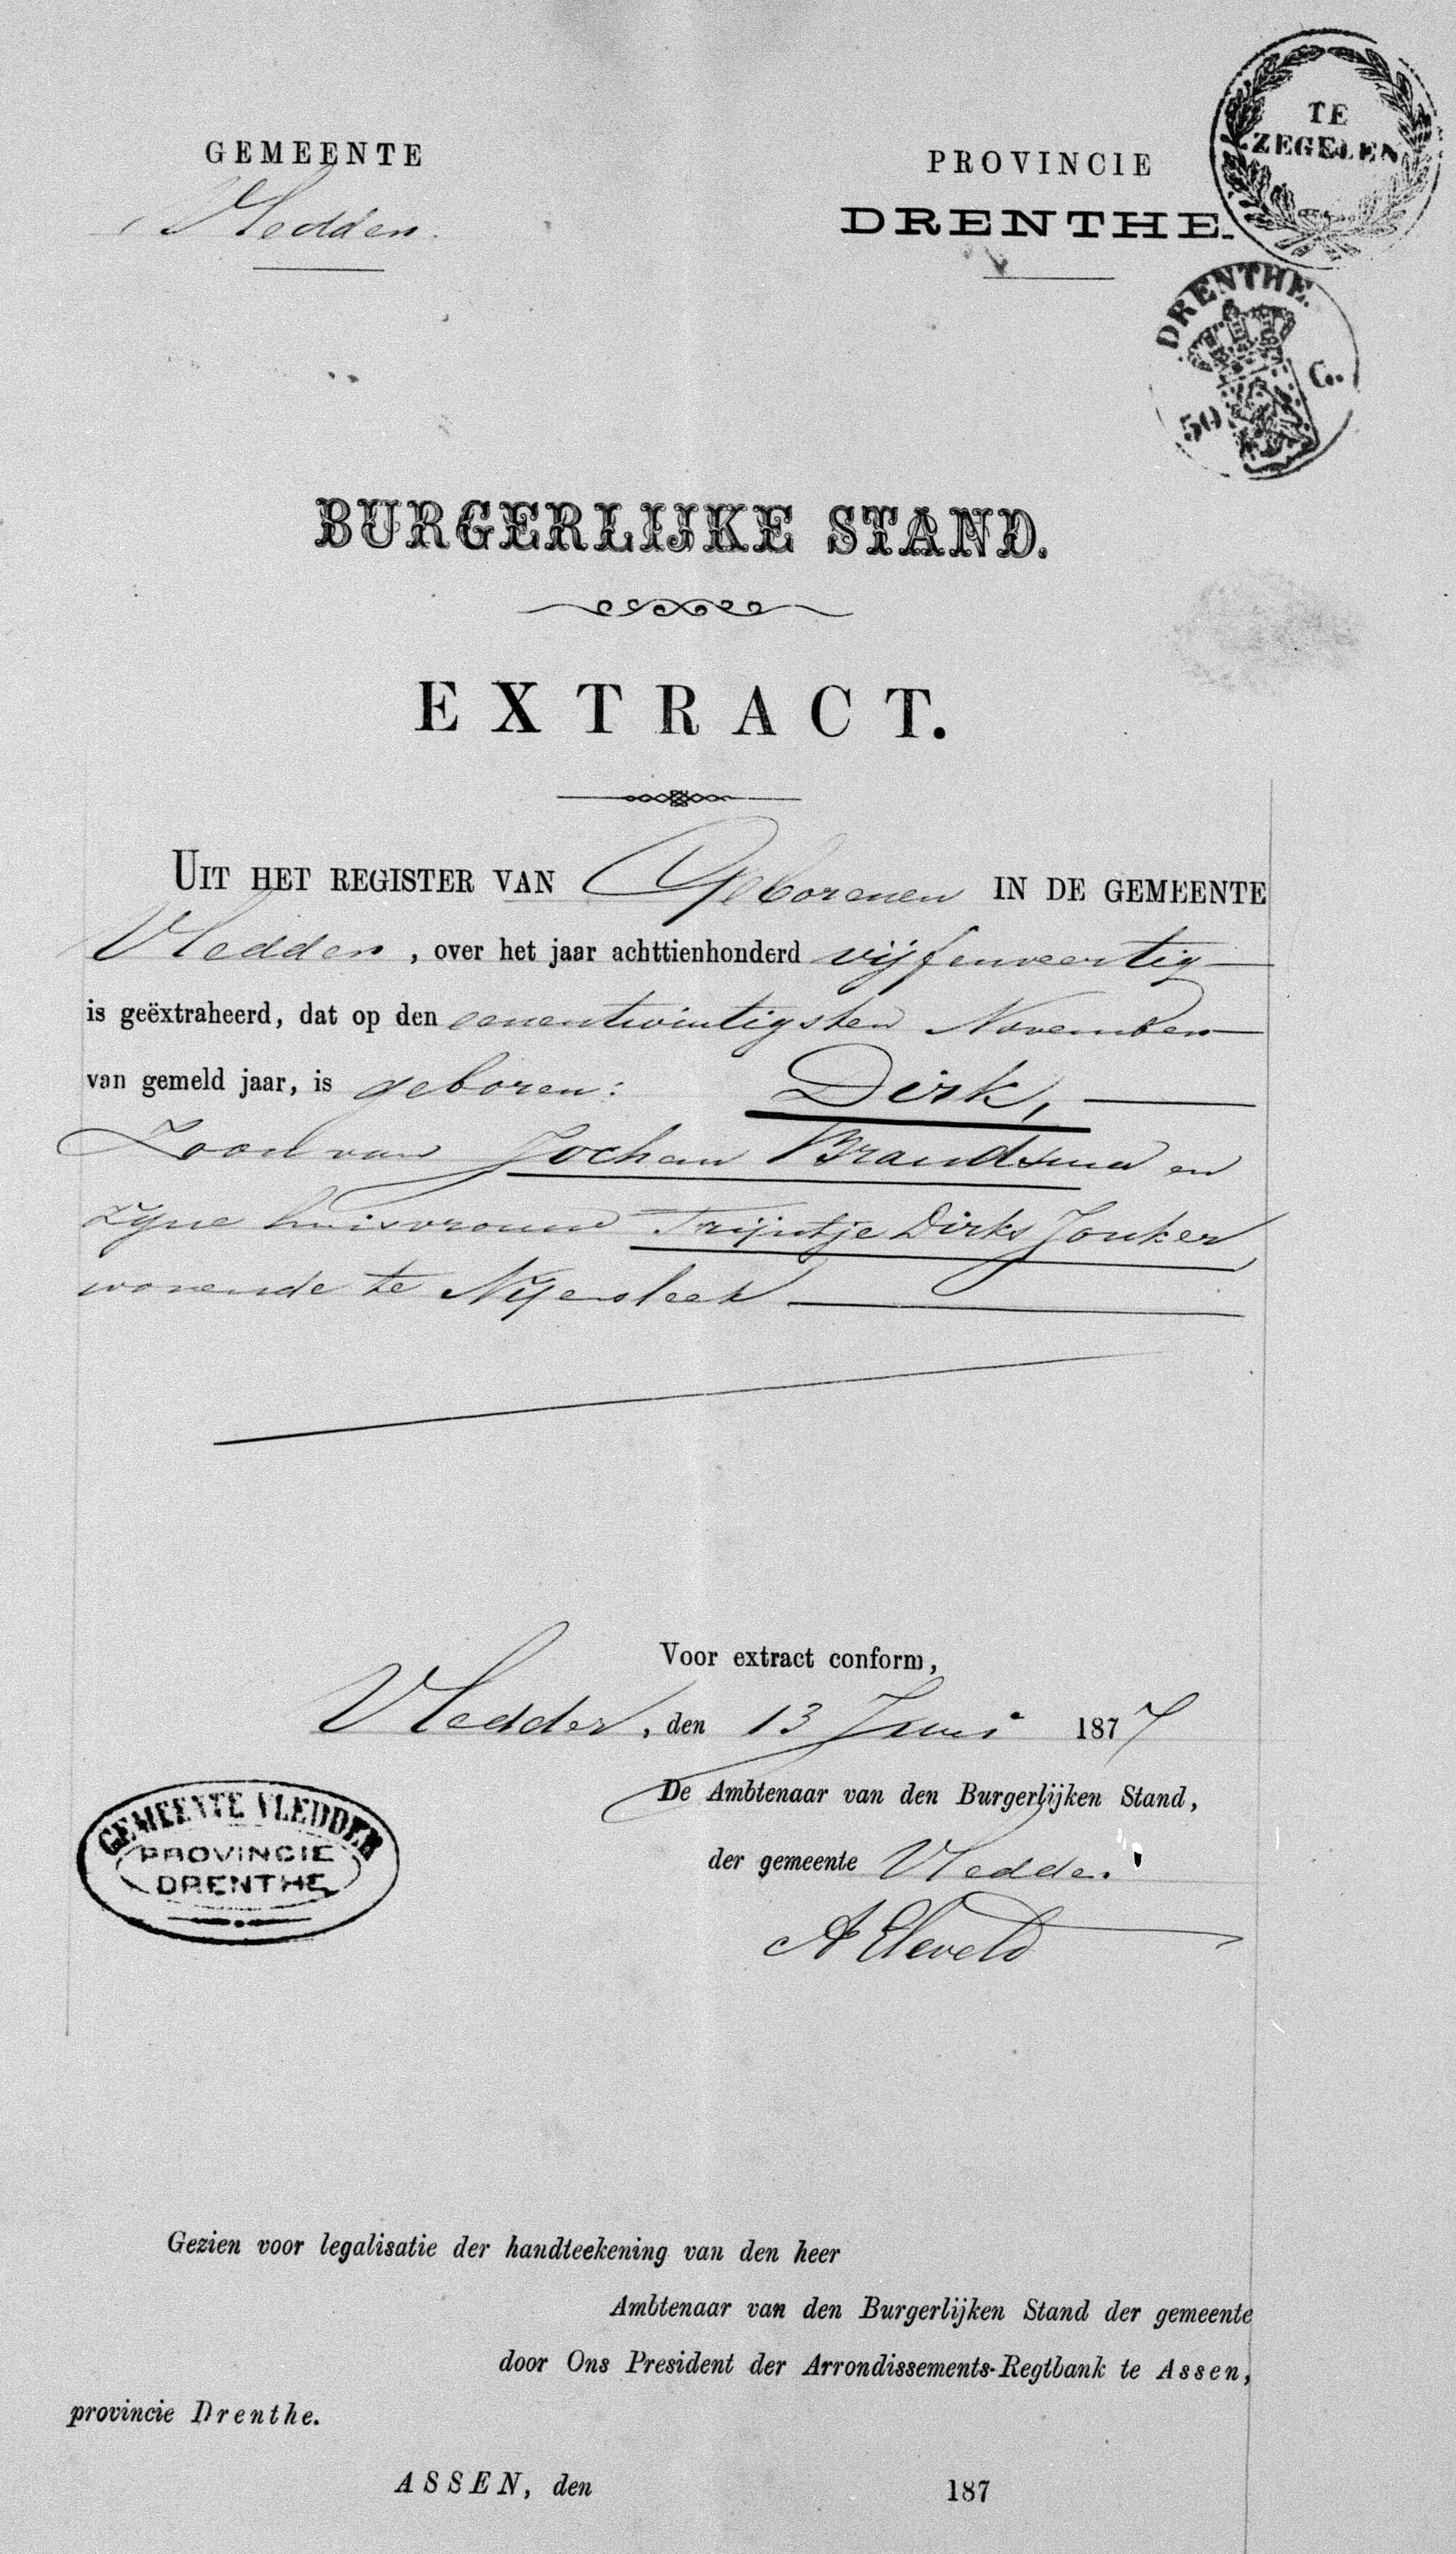 GEMEENTE
Vledder.
PROVINCIE
DRENTHE.
TE
ZEGELEN
DRENTHE.
50 C.
BURGERLIJKE STAND.
EXTRACT.
UIT HET REGISTER VAN Geborenen IN DE GEMEENTE
Vledder, over het jaar achttienhonderd vijfenveertig
is geëxtraheerd, dat op den eenentwintigsten November
van gemeld jaar, is geboren: Dirk,
Zoon van Jochem Brandsma en
zijne huisvrouw Trijntje Dirks Jonker
wonende te Nijensleek
Voor extract conform,
Vledder, den 13 Juni 1877
De Ambtenaar van den Burgerlijken Stand,
der gemeente Vledder.
A Eleveld
GEMEENTE VLEDDER
PROVINCIE
DRENTHE
Gezien voor legalisatie der handteekening van den heer
Ambtenaar van den Burgerlijken Stand der gemeente
door Ons President der Arrondissements-Regtbank te Assen,
provincie Drenthe.
ASSEN, den 187